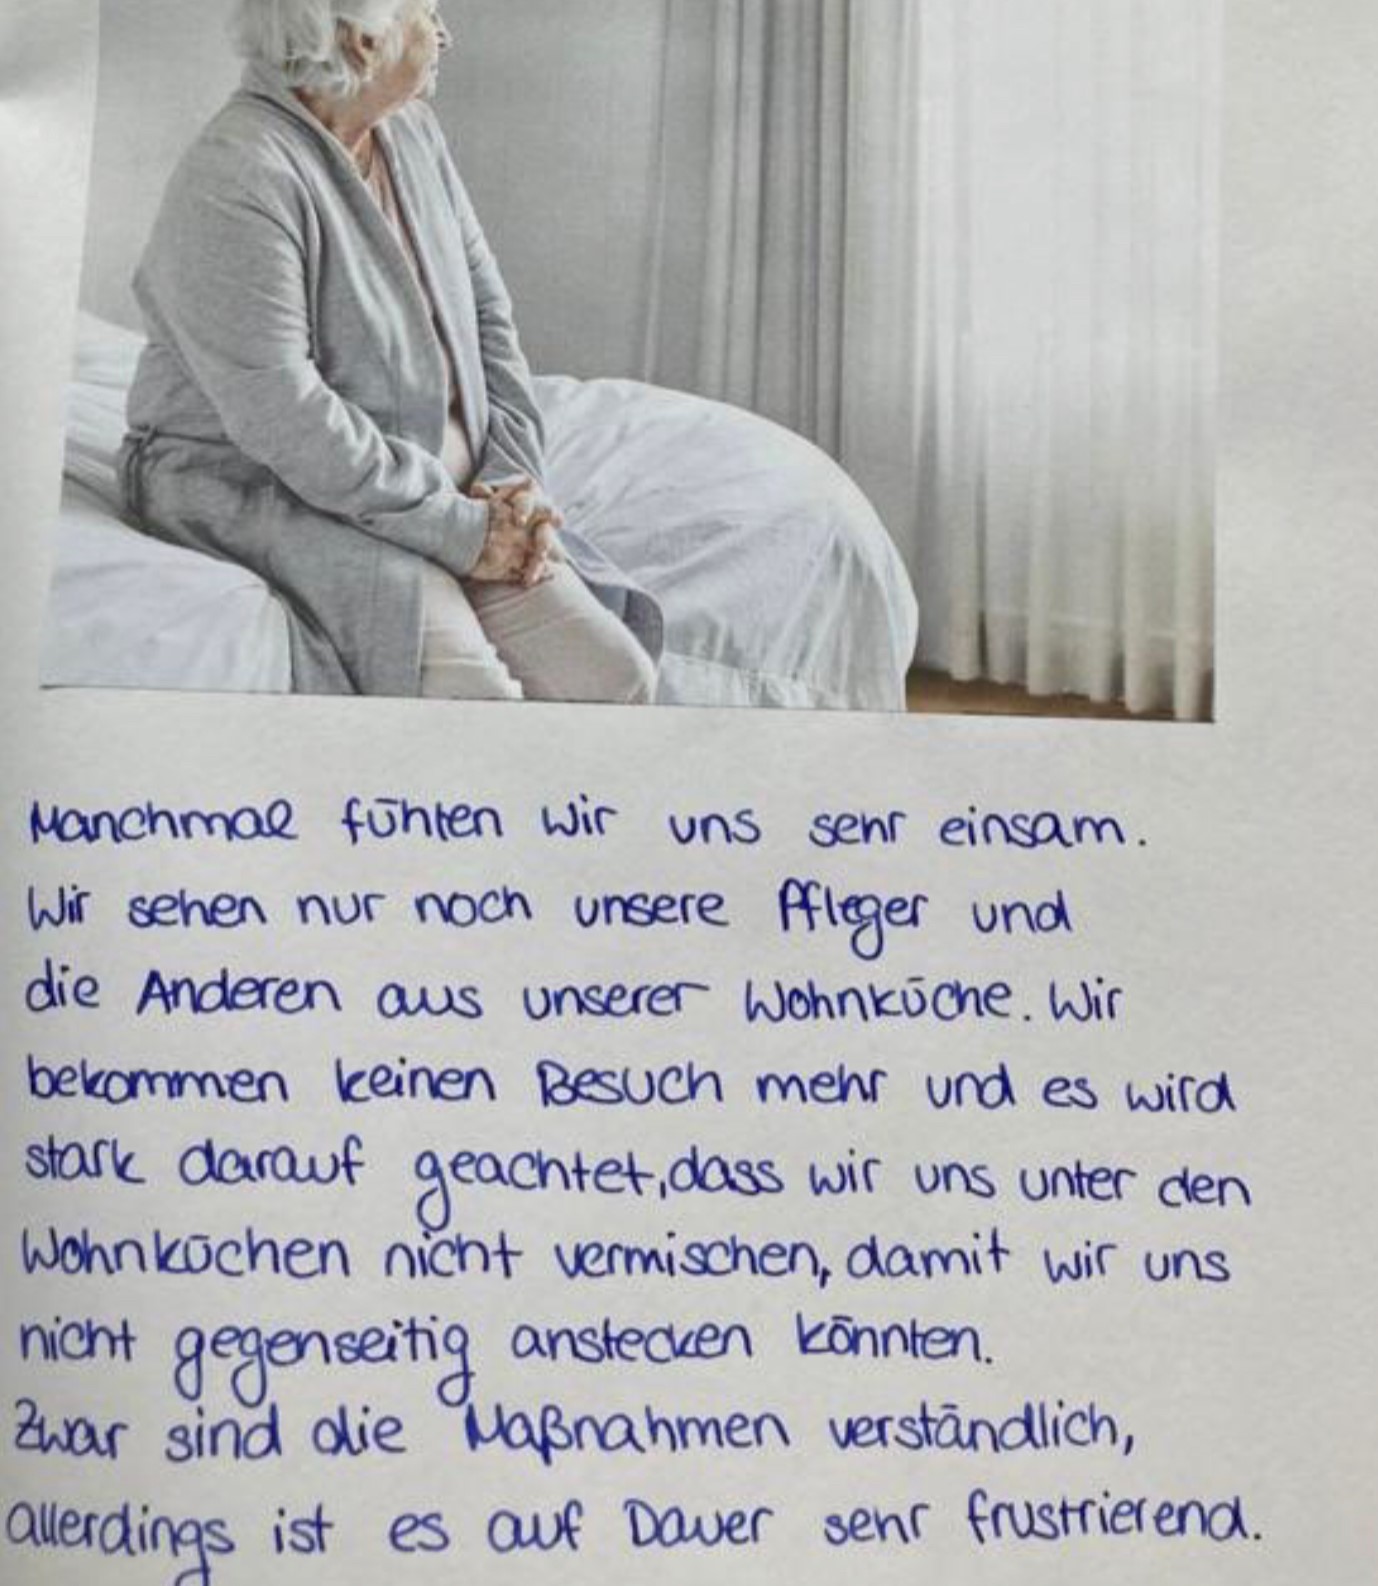 Manchmal fühlen wir uns sehr einsam.
Wir sehen nur noch unsere Pfleger und
die Anderen aus unserer Wohnküche. Wir
bekommen keinen Besuch mehr und es wird
stark darauf geachtet, dass wir uns unter den
Wohnküchen nicht vermischen, damit wir uns
nicht gegenseitig anstecken könnten.
Zwar sind die Maßnahmen verständlich,
allerdings ist es auf Dauer sehr frustrierend.